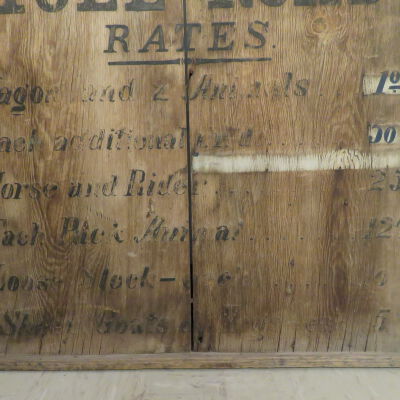 TOLL ROAD
RATES.
Wagon and 2 Animals 1 0
Each additional 50
Horse and Rider ... 25
Each Pack Animal .. 12
Loose Stock —
Sheep Goats 5